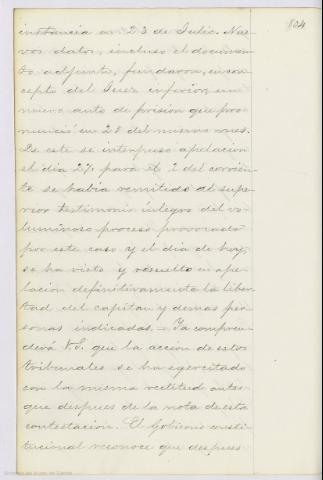 104
instancia en 23 de Julio. Nue-
vos datos, incluso el documen-
to adjunto, fundaron, en con-
cepto del Juez inferior, un
nuevo auto de prision que pro-
nunció en 28 del mismo mes.
De este se interpuso apelacion
el dia 29, para el 2 del corrien-
te se habia remitido al supe-
rior testimonio integro del vo-
luminoso proceso provocado
por este caso y el dia de hoy,
se ha visto y resuelto en ape-
lacion definitivamente la liber-
tad del capitan y demas per-
sonas indicadas. = Ya compren-
derá V.S. que la accion de estos
tribunales se ha ejercitado
con la misma rectitud antes
que despues de la nota de esta
contestacion. El Gobierno consti-
tucional reconoce que despues